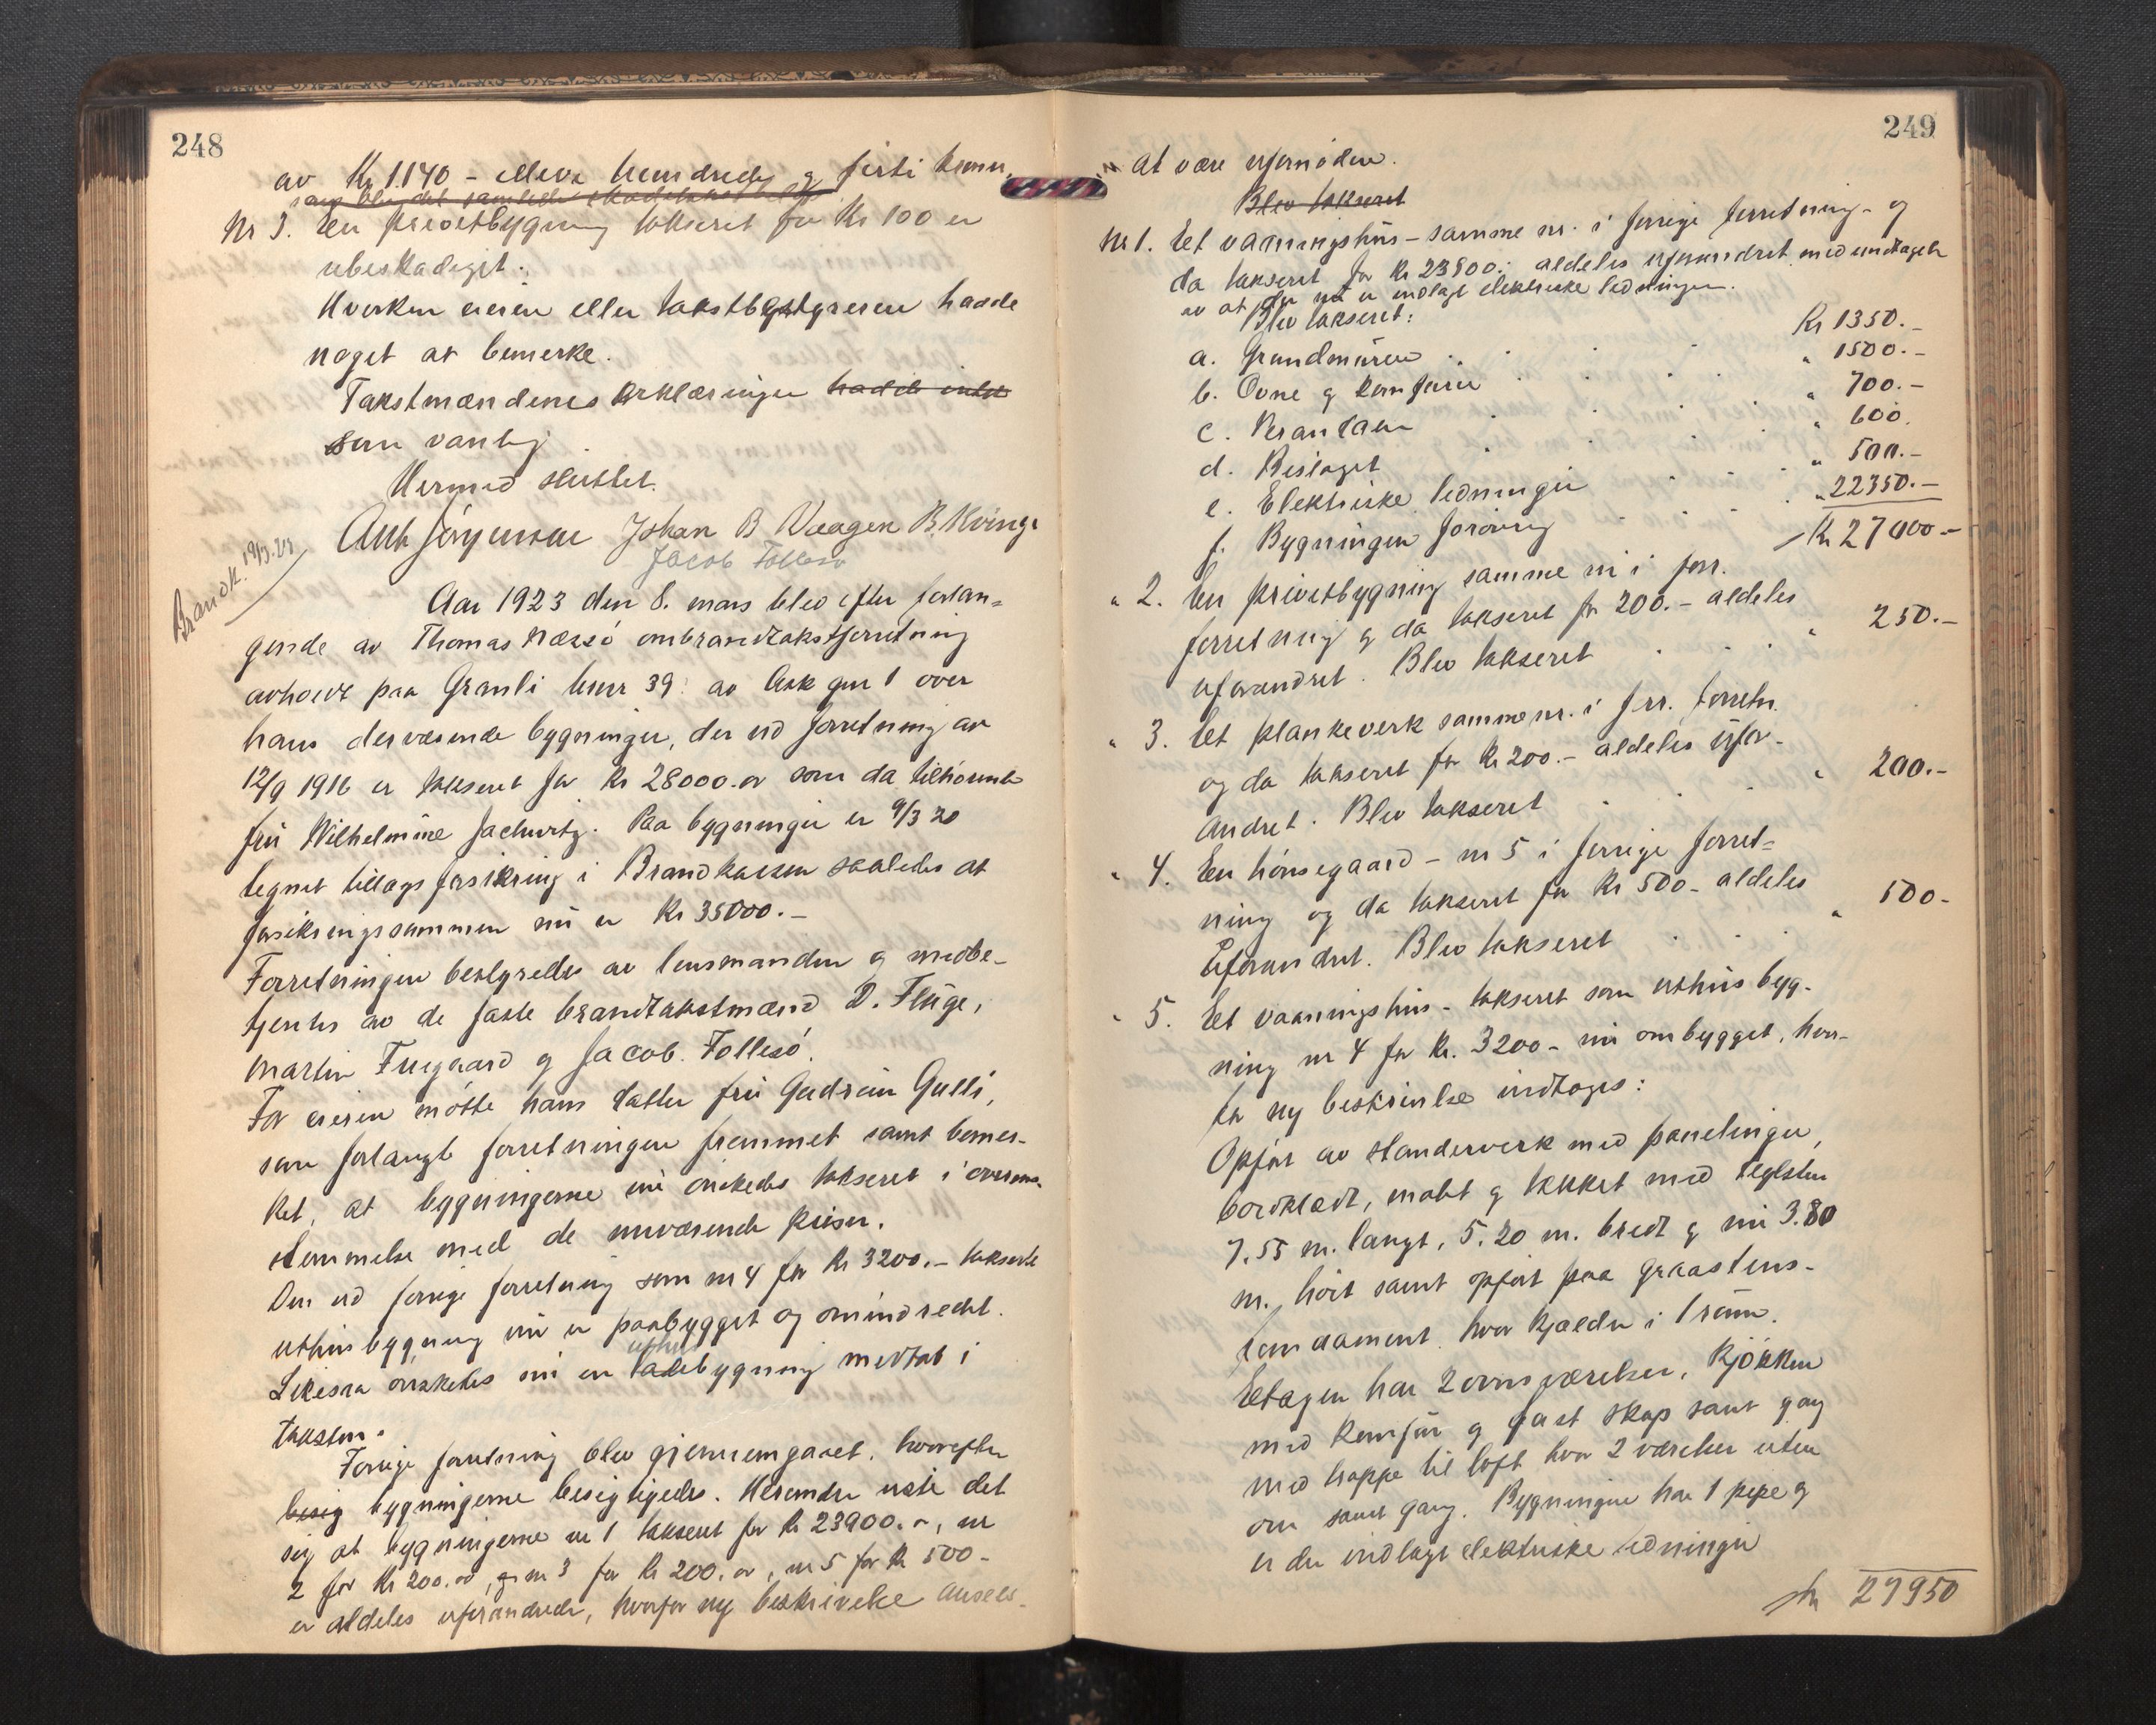 248
av Kr 1140 - elleve hundrede og førti kroner,
som blev det samlede skadetakstbeløp
Nr 3. En privetbygning takseret for Kr 100 er
ubeskadiget.
Hverken eieren eller takstbestyreren hadde
noget at bemerke.
Takstmændenes erklæringer hadde intet
som vanlig
Hermed sluttet.
Ant Jørgensen Johan B Vaagen B. Kvinge
Jacob Follesø
Brandk. 19/3.23
Aar 1923 den 8. mars blev efter forlan=
gende av Thomas Næssø ombrandtakstforretning
avholdt paa Granli bnr 39 av Ask gnr 1 over
hans derværende bygninger, der ved forretning av
12/9 1916 er takseret for Kr 28000.00 som da tilhørende
fru Wilhelmine Jachwitz. Paa bygninger er 9/3 20
tegnet tillægsforsikring i Brandkassen saaledes at
forsikringssummen nu er Kr 35000.-
Forretningen bestyredes av lensmanden og medbe-
tjentes av de faste brandtakstmænd D. Fluge,
Martin Tuegaard og Jacob Follesø.
For eieren møtte hans datter fru Gudrun Gulli,
som forlangte forretningen fremmet samt bemer-
ket, at bygningerne nu ønskedes takseret i overens-
stemmelse med de nuværende priser.
Den ved forrige forretning som nr 4 for Kr 3200.- takserte
uthusbygning nu er paabygget og omindredet.
Likesaa ønskedes nu en ladebygning medtat i
uthus
taksten.
Forrige forretning blev gjennemgaaet, hvorefter
besig bygningerne besigtigedes. Herunder viste det
sig at bygningerne nr 1 takseret for Kr 23900.-, nr
2 for Kr 200.00, og nr 3 for Kr 200.00, nr 5 for Kr 500-
er aldeles uforandrede, hvorfor ny beskrivelse ansees-
249
at være ufornøden.
Blev takseret
Nr 1. Et vaaningshus - samme nr. i forrige forretning - og
da takseret for Kr 23900.- aldeles uforandret med undtagelse
av at der nu er indlagt elektriske ledninger.
Blev takseret:
a. Grundmuren . . . Kr 1350.-
b. Ovne og komfurer . . . " 1500.-
c. Verandaen . . . " 700.-
d. Beslaget . . . " 600.
e. Elektriske ledninger . . . " 500.-
f. Bygningen forøvrig . . . " 22350.-
Kr 27000-
" 2. En privetbygning samme nr i forr.
forretning og da takseret for 200.- aldeles
uforandret. Blev takseret . . . " 250.-
" 3. Et plankeverk samme nr. i forr. forretn.
og da takseret for Kr 200.- aldeles ufor-
andret. Blev takseret . . . " 200.-
" 4. En hønsegaard - nr 5 i forrige forret=
ning og da takseret for Kr 500- aldeles
uforandret. Blev takseret . . . " 500-
" 5. Et vaaningshus - takseret som uthusbyg-
ning nr 4 for Kr. 3200- nu ombygget, hvor-
for ny beskrivelse indtages:
Opført av standerverk med panelinger,
bordklædt, malet og tækket med teglsten
7.55 m. langt, 5.20 m. bredt og nu 3.80
m. høit samt opført paa graastens-
fundament hvor kjælder i 1 rum.
Etagen har 2 ovnsværelser, kjøkken
med komfur og fast skap samt gang
med trappe til loft hvor 2 værelser uten
ovn samt gang. Bygningen har 1 pipe og
er der indlagt elektriske ledninger
27950